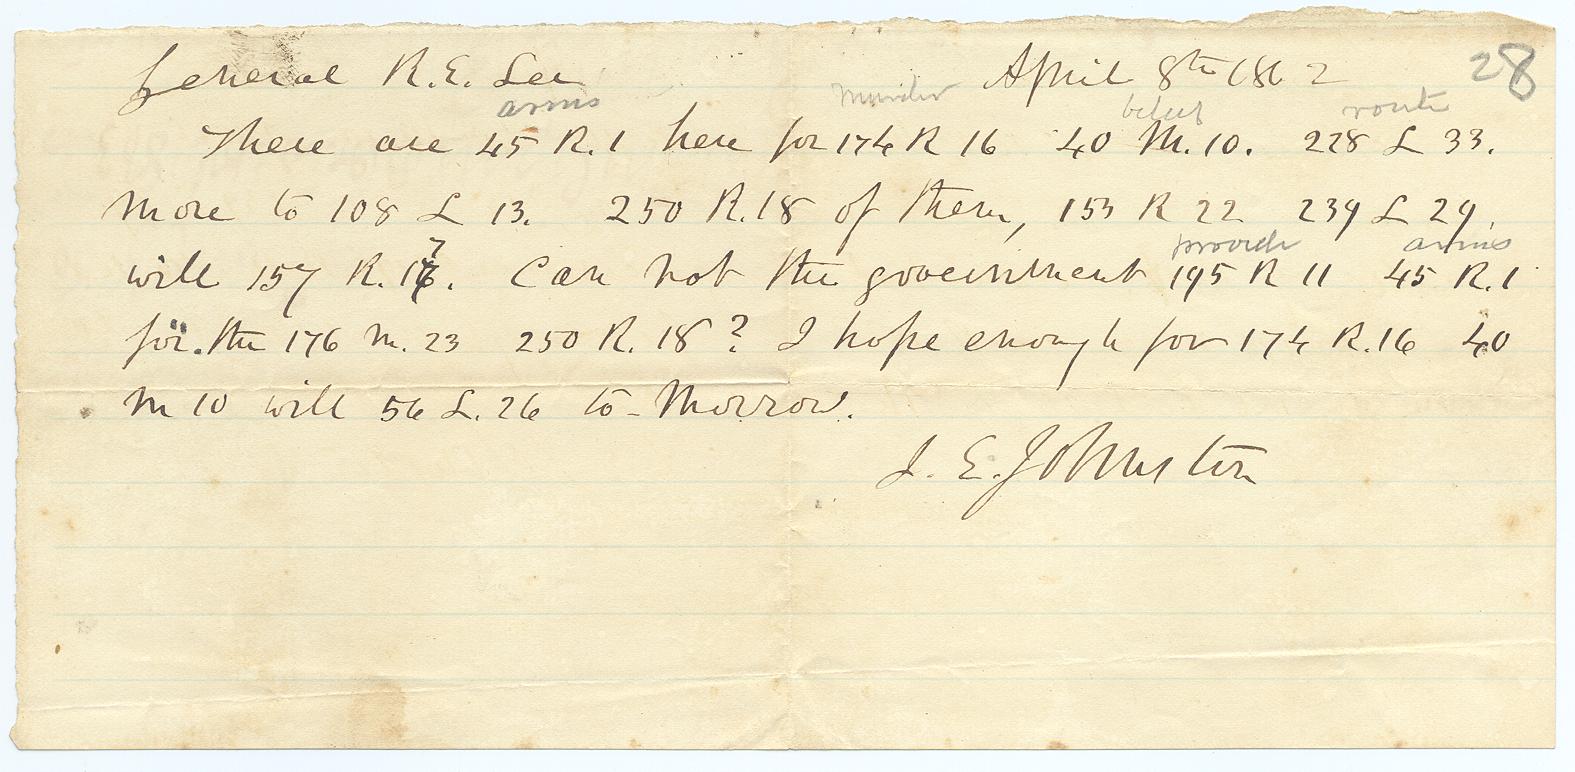 28
General R.E. Lee April 8th 1862
arms route
There are 45 R.1 here for 174 R 16 40 M.10. 228 L 33.
more to 108 L 13. 250 R.18 of them, 153 R 22 239 L 29.
provide arms
will 157 R. 17. Can not the government 195 R 11 45 R.1
for the 176 M. 23 250 R. 18? I hope enough for 174 R.16 40
M 10 will 56 L. 26 to-Morrow.
J. E. Johnston